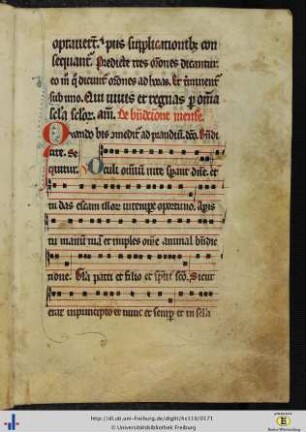 optauert. piis supplicationibz con
sequant. Predicte tres orones dicantur
eo m q dicunt orones ad horas. Et tminent
sub uno. Qui uiuis et regnas p omia
sela selor. am. De bndictione mense.
Quando bis comedit ad prandiu. dr. bndi
cite. Se
quitur. Oculi omiu in te sperant dne. et
tu das escam illor in tempore oportuno. Apis
tu manu tua et imples ome animal bndic
tione. Gla patri et filio et spui sco. Sicut
erat in principio et nunc et semp et in sela
http://dl.ub.uni-freiburg.de/diglit/hs1133/0171
© Universitätsbibliothek Freiburg